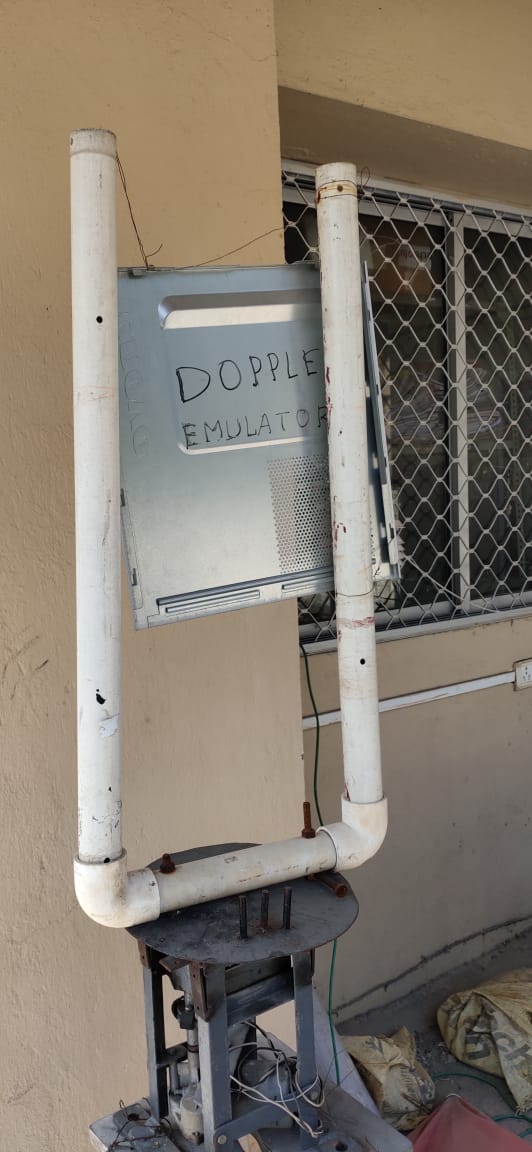 DOPPLE
EMULATOR